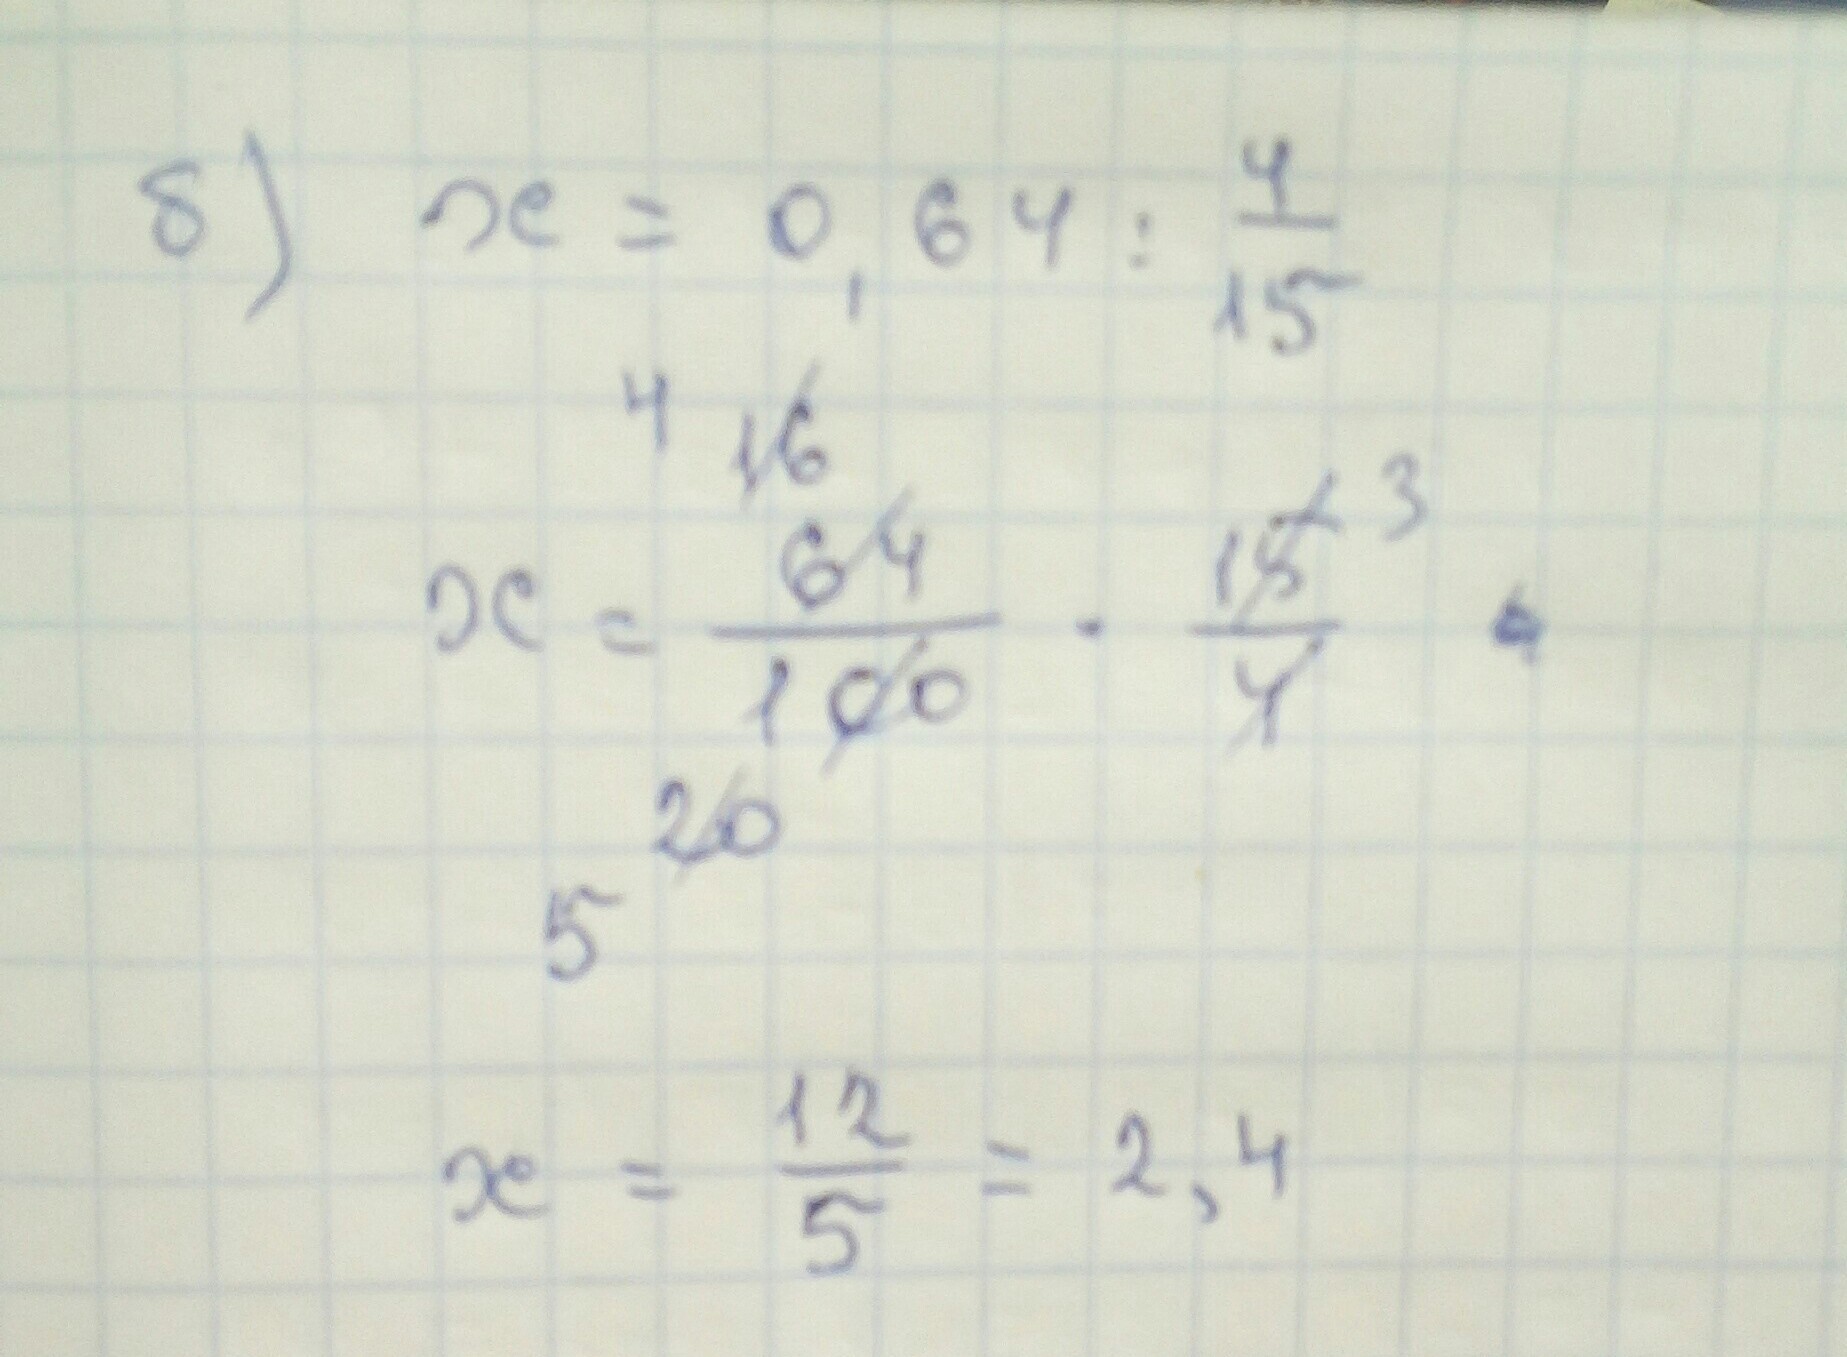 б) x = 0,64 : 4/15
4 16
x = 64/100 · 15/4 3
20
5
x = 12/5 = 2,4